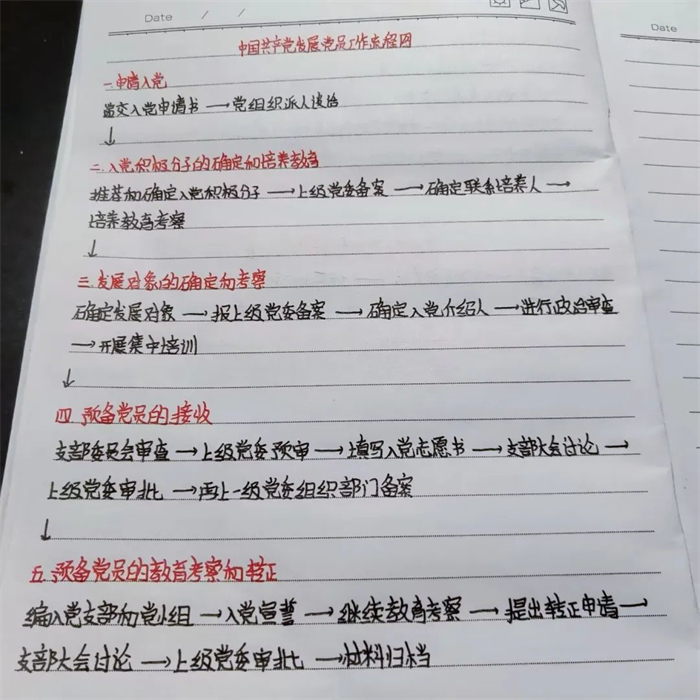 Date / /
Date
中国共产党发展党员工作流程图
一.申请入党
递交入党申请书→党组织派人谈话
↓
二.入党积极分子的确定和培养教育
推荐和确定入党积极分子→上级党委备案→确定联系培养人→
培养教育考察
↓
三.发展对象的确定和考察
确定发展对象→报上级党委备案→确定入党介绍人→进行政治审查
→开展集中培训
↓
四.预备党员的接收
支部委员会审查→上级党委预审→填写入党志愿书→支部大会讨论→
上级党委审批→再上一级党委组织部门备案
↓
五.预备党员的教育考察和转正
编入党支部和党小组→入党宣誓→继续教育考察→提出转正申请→
支部大会讨论→上级党委审批→材料归档